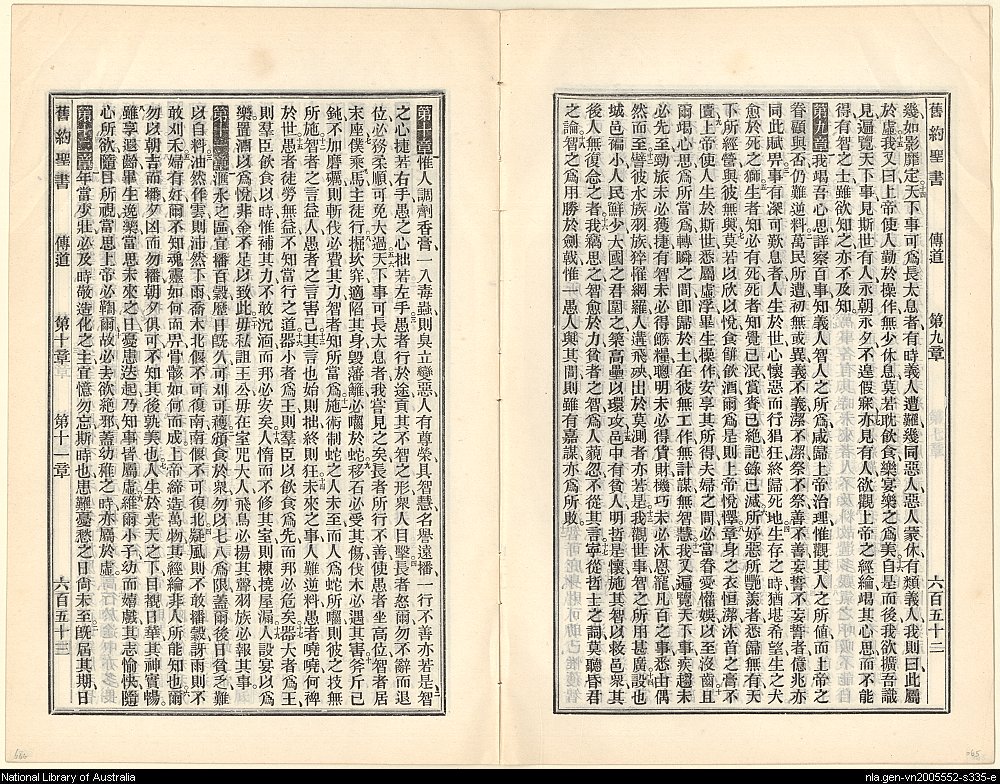 舊約聖書 傳道 第九章 六百五十二
幾如影靡定天下事可爲長太息者有時義人遭罹幾同惡人惡人蒙休有類義人我則曰此屬
於虛我又曰上帝使人勤於操作無少休息莫若耽飲食樂宴樂之爲美自是而後我欲擴吾識
見遍覽天下事見斯世有人永朝永夕不遑假寐亦見有人欲觀上帝之經綸竭其心思而不能
得有智之士雖欲知之亦不及知
第九章我竭吾心思詳察百事知義人智人之所爲咸歸上帝治理惟觀其人之所値而上帝之
眷顧與否仍難逆料萬民所遭初無或異義不義潔不潔祭不祭善不善妄誓不妄誓者億兆亦
同此賦畀事有深可歎息者人生於世心懷惡而行猖狂終歸死地生存之時猶堪希望生之犬
愈於死之獅生者知必有死死者知覺已泯賞賚已絕記錄已滅所好惡所艷羨者悉歸無有天
下所經營與彼無與莫若以欣以悅食餅飲酒爾爲是則上帝悅懌章身之衣恒潔沐首之膏不
匱上帝使人生於斯世悉屬虛浮畢生操作安享其所得夫婦之間必當眷愛懽娛以至沒齒且
爾竭心思爲所當爲轉瞬之間卽歸於土在彼無工作無計謀無智慧我又遍覽天下事疾趨未
必先至勁旅未必獲捷有智未必得餱糧聰明未必得貨財機巧未必沐恩寵凡百之事悉由偶
然而至譬彼水族羽族猝罹網羅人遘飛殃出於莫測者亦若是我觀世事智之所用甚廣設也
城邑褊小人民鮮少大國之君圍之築高壘以環攻邑中有貧人明哲是懷施其智以救邑衆其
後人無復念之者我竊思之智愈於力貧者之智爲人藐忽不從其言寧從哲士之詞莫聽昏君
之論智之爲用勝於劍戟惟一愚人與其間則雖有嘉謀亦爲所敗
第十章惟人調劑香膏一入毒蟲則臭立變惡人有尊榮具智慧名譽遠播一行不善亦若是智
之心捷若右手愚之心拙若左手愚者行於途貢其不智之形衆人目擊長者怒爾勿不辭而退
位必務柔順可免大過天下事可長太息者我嘗見之矣長者所行不善使愚者坐高位智者居
末座僕乘馬主徒行掘坎穽適陷其身毁藩籬必囓於蛇移石必受其傷伐木必遇其害斧斤已
鈍不加磨礪則斬伐必費其力智者知所當爲施術制蛇之人未至而人爲蛇所囓則彼之技無
所施智者之言益人愚者之言害己其言也始則拙終則狂未來之事人難逆料愚者嘵嘵何裨
於世愚者徒勞無益不知當行之道器小者爲王則羣臣以飲食爲先而邦必危矣器大者爲王
則羣臣飲食以時惟補其力不敢沉湎而邦必安矣人惰而不修其室則棟撓屋漏人設宴以爲
樂置酒以爲悅非金不足以致此毋私詛王公毋在室咒大人飛鳥必揚其聲羽族必報其事
第十一章滙水之區宜播百穀歷日旣久可刈可穫頒食於衆勿以七八爲限蓋爾後日貧乏難
以自料油然作雲則沛然下雨喬木北偃不可復南南偃不可復北疑風則不敢播穀訝雨則不
敢刈禾婦有妊爾不知魂靈如何而畀骨骸如何而成上帝締造萬物其經綸非人所能知也爾
勿以朝吉而播夕凶而勿播朝夕俱可不知其後孰美也人生於光天之下目覩日華其神實暢
雖享遐齡畢生逸樂當思未來之日憂患迭起乃知事皆屬虛維爾小子幼而嬉戲其志愉快隨
心所欲隨目所視當思上帝必鞫爾故必去欲絕邪蓋幼稚之時亦屬於虛
第十二章年當少壯必及時敬造化之主宜憶勿忘斯時也患難憂愁之日尙未至旣屆其期日
舊約聖書 傳道 第十章 第十一章 六百五十三
National Library of Australia
nla.gen-vn2005552-s335-e